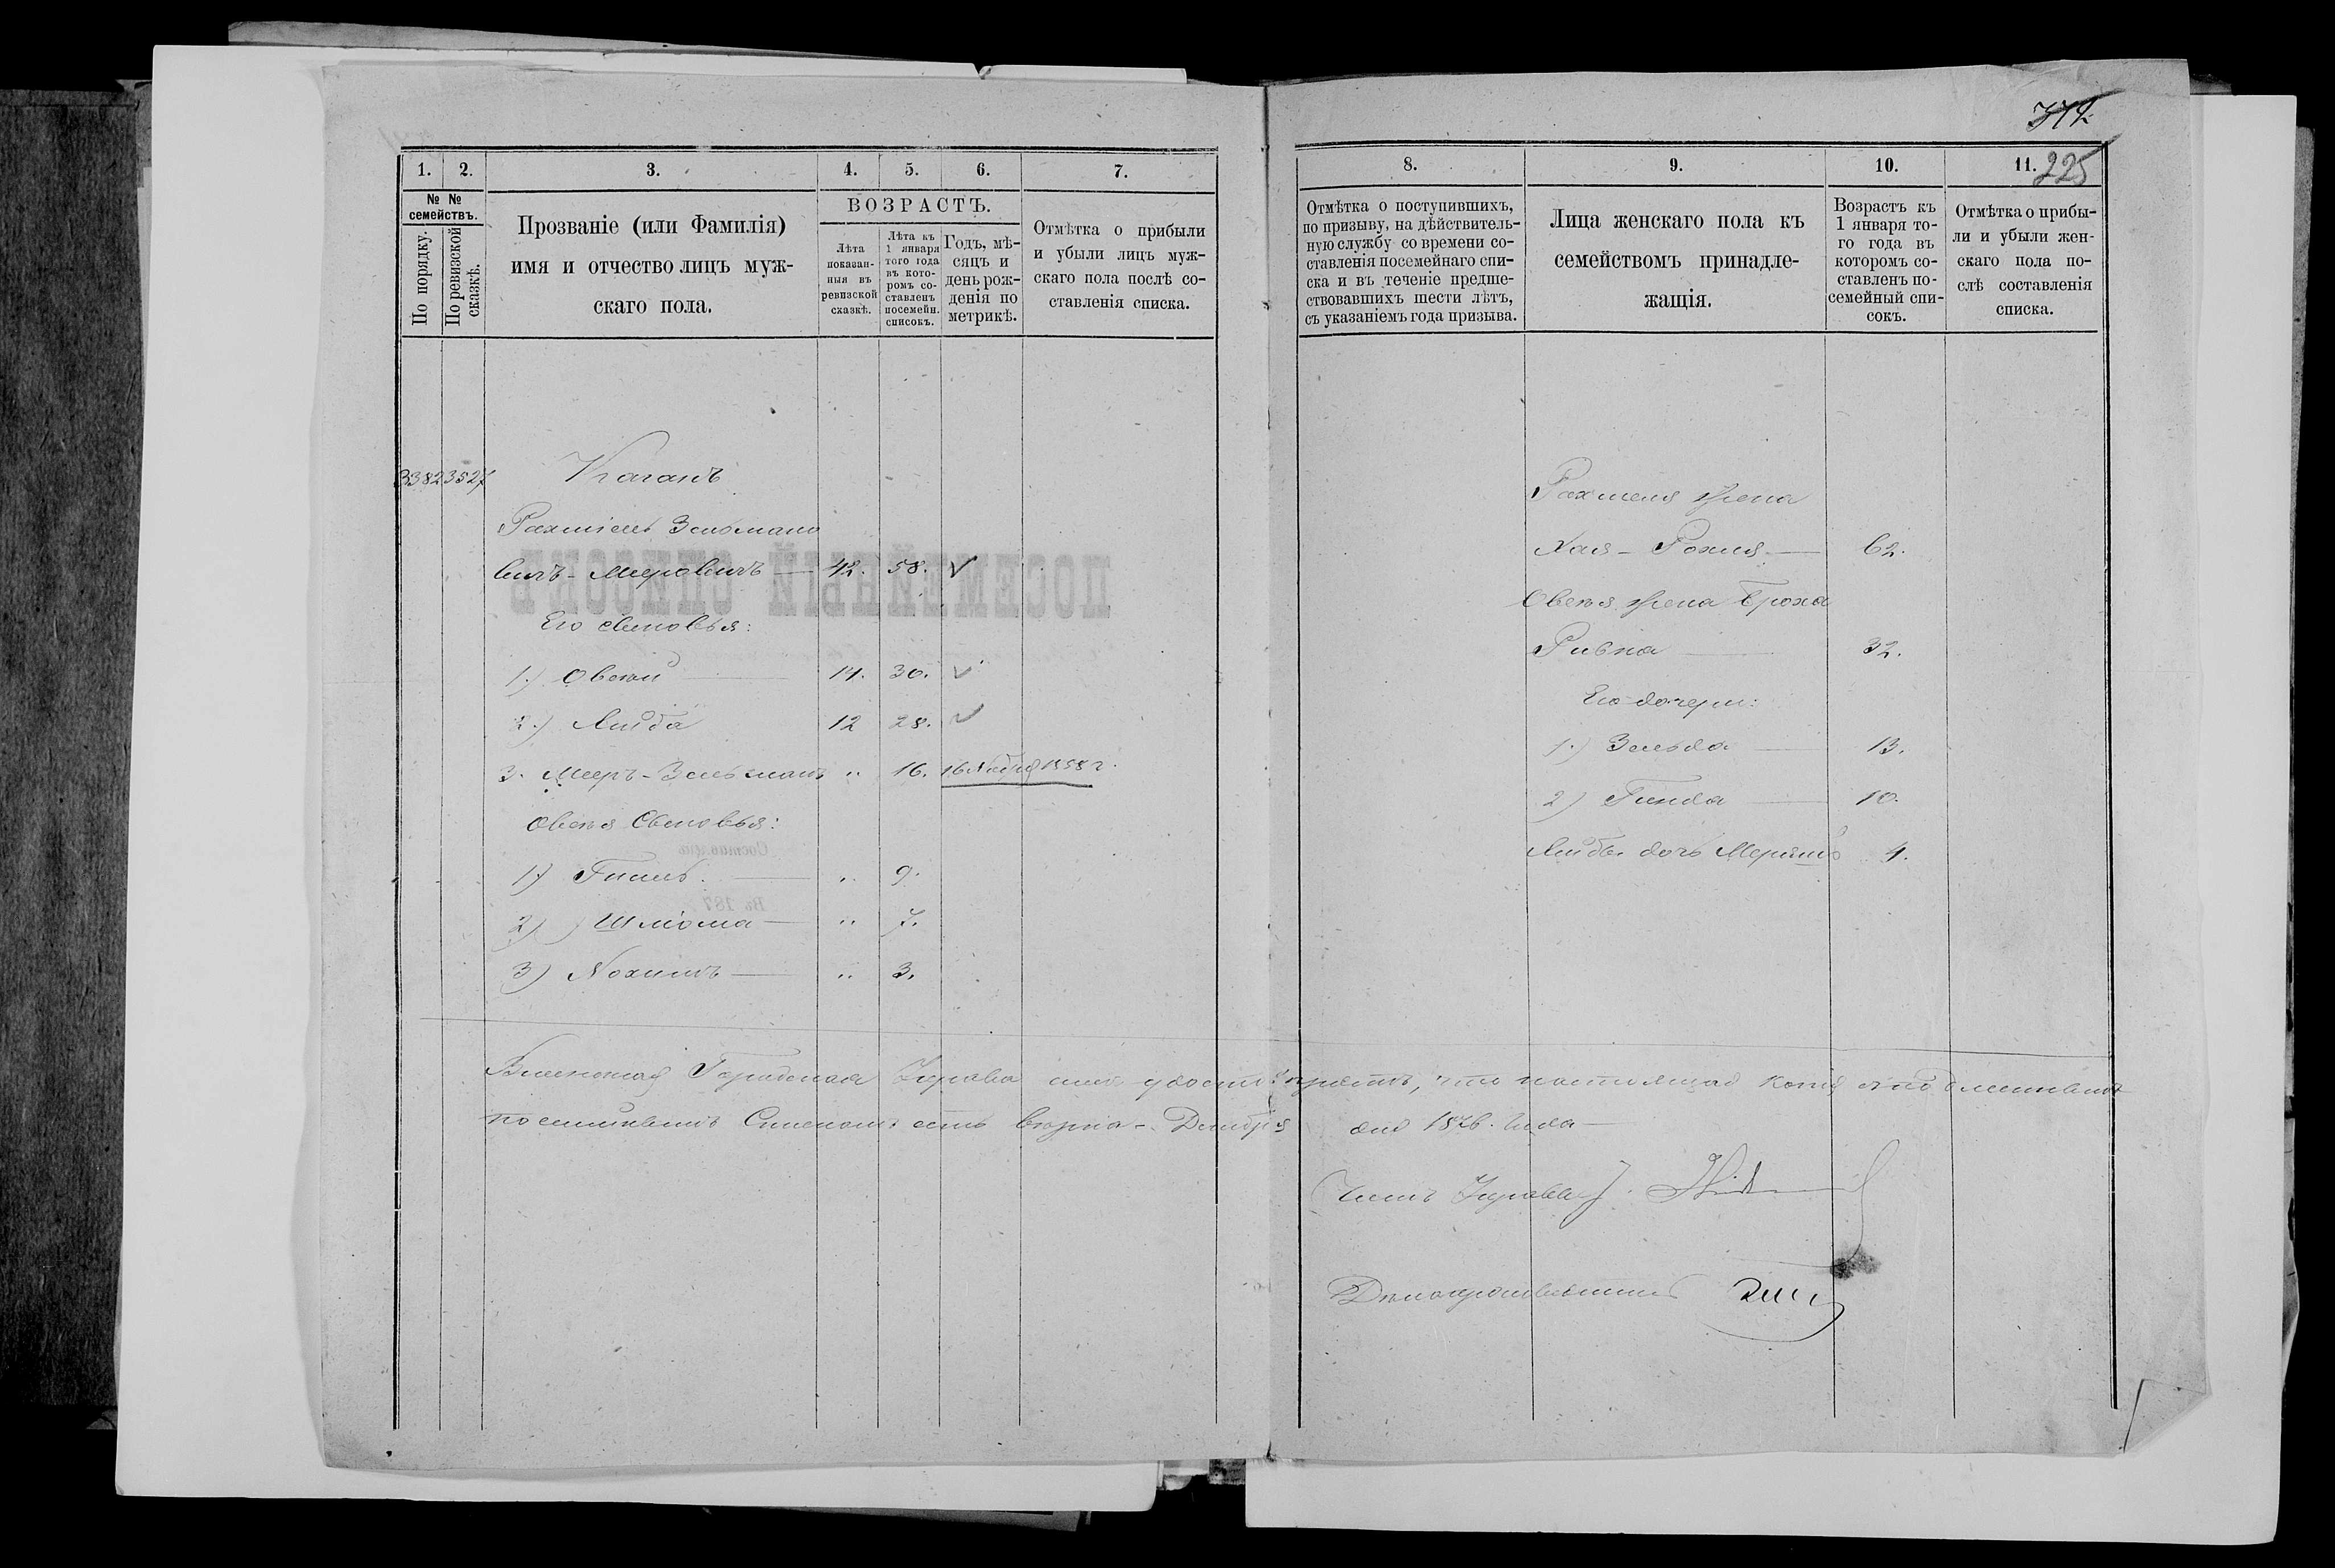 1.
2.
3.
4.
5.
6.
7.
№ №
семействъ.
По порядку.
По ревизской
сказкѣ.
Прозваніе (или Фамилія)
имя и отчество лицъ муж-
скаго пола.
ВОЗРАСТЪ.
Лѣта
показан-
ныя въ
ревизской
сказкѣ.
Лѣта къ
1 января
того года
въ кото-
ромъ со-
ставленъ
посемейн.
списокъ.
Годъ, мѣ-
сяцъ и
день рож-
денія по
метрикѣ.
Отмѣтка о прибыли
и убыли лицъ муж-
скаго пола послѣ со-
ставленія списка.
3382 3527 Каганъ
Рахміель Зельмано
вичъ-Меровичъ 42. 58.
Его сыновья:
1.) Овсей 14. 30.
2.) Лейба 12 28.
3. Меръ-Зельманъ " 16. 16 Ноября 1858 г.
Овсея Сыновья:
1.) Гилель " 9.
2) Шліома " 7.
3) Нохимъ " 3.
225
8.
9.
10.
11.
Отмѣтка о поступившихъ,
по призыву, на дѣйствитель-
ную службу со времени со-
ставленія посемейнаго спи-
ска и въ теченіе предше-
ствовавшихъ шести лѣтъ,
съ указаніемъ года призыва.
Лица женскаго пола къ
семействомъ принадле-
жащія.
Возрастъ къ
1 января то-
го года въ
которомъ со-
ставленъ по-
семейный спи-
сокъ.
Отмѣтка о прибы-
ли и убыли жен-
скаго пола по-
слѣ составленія
списка.
Рахмеля жена
Хая-Рохля 62.
Овсея жена Броха
Ривка 32.
Его дочери:
1.) Зельда 13.
2) Гинда 10.
Лейбы дочь 4.
Виленская Городская Управа симъ удостовѣряетъ, что настоящая копія съ подлиннымъ
посемейнымъ Спискомъ есть вѣрна. Декабря дня 1876. Года
Членъ Управы
Дѣлопроизводитель
ПОСЕМЕЙНЫЙ СПИСОКЪ
Составленъ
Въ 187